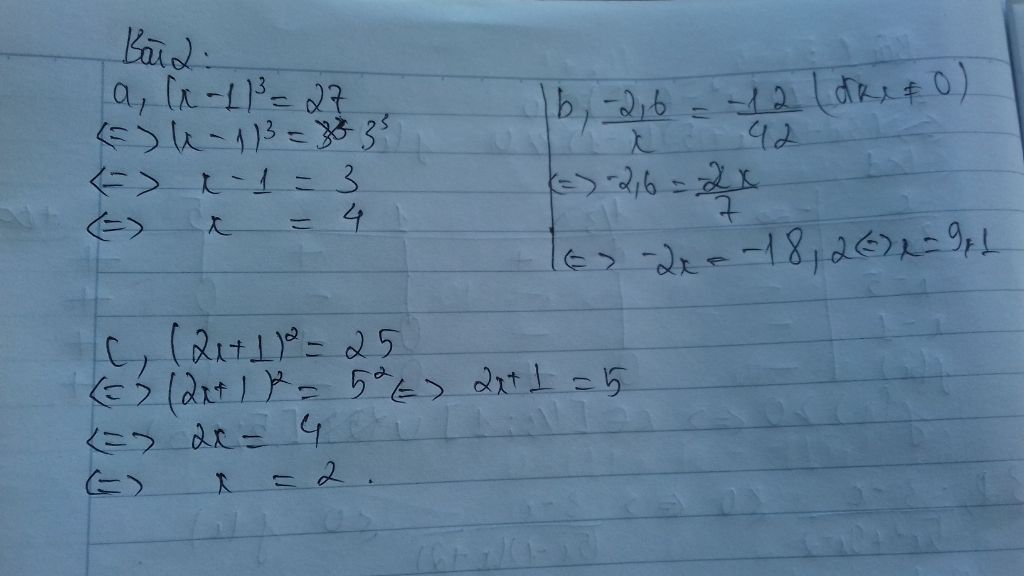 Bài 2:
a, (x-1)³ = 27
<=> (x-1)³ = 3³
<=> x-1 = 3
<=> x = 4
b, -2,6/x = -12/42 (đk x ≠ 0)
<=> -2,6 = -2x/7
<=> -2x = -18,2 <=> x = 9,1
c, (2x+1)² = 25
<=> (2x+1)² = 5² <=> 2x+1 = 5
<=> 2x = 4
<=> x = 2.